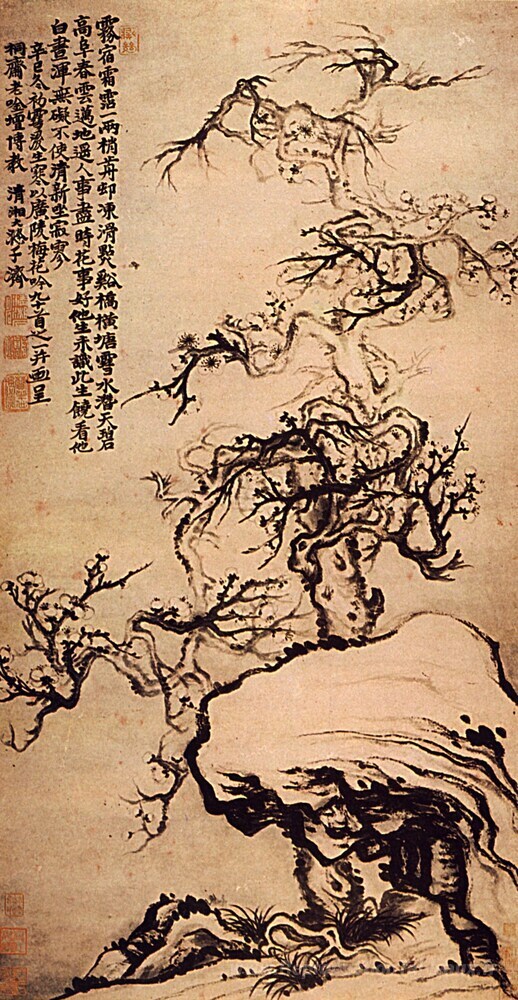 霧宿霜露一兩梢舟却凍滑點谿橋橫塘雪水潛天碧
高阜春雲邁地遥人事盡時花事好他生未識此生饒看他
白晝渾無礙不使清新坐寂寥
辛巳冬初雪後生寒以廣陵梅花吟九首之一并畫呈
桐齋老唫壇博教 清湘大滌子濟